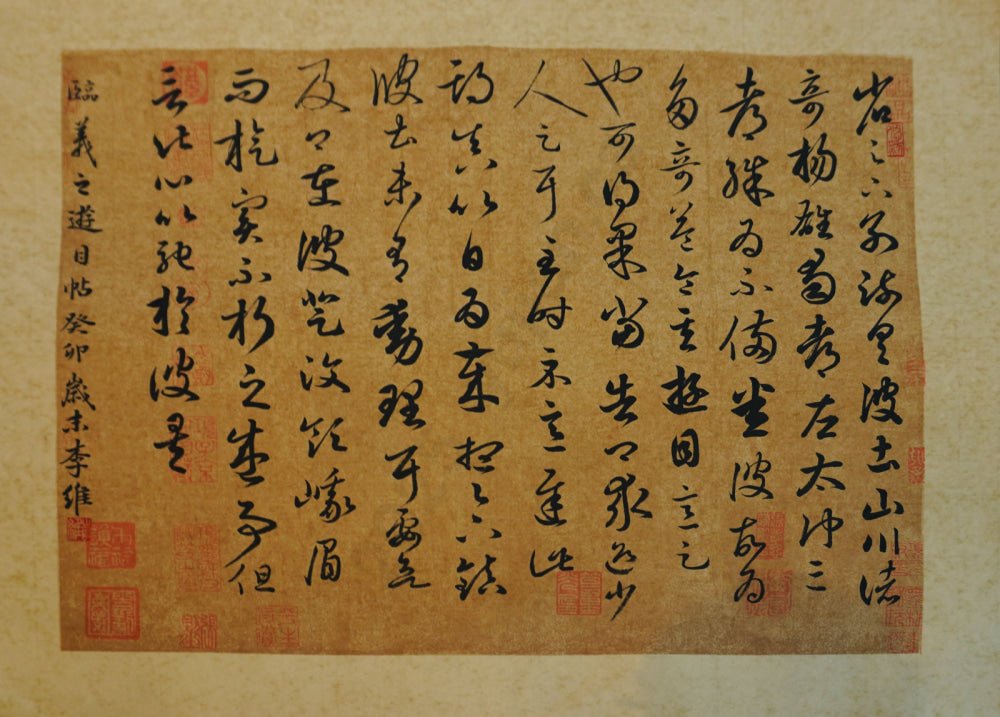 省足下別疏具彼土山川諸
奇楊雄蜀都左太沖三
都殊為不備悉彼故為
多奇益令其遊目意足
也可得果當告卿求迎少
人足耳至時示意遲此
期真以日為歲想足下鎮
彼土未有動理耳要欲
及卿在彼登汶領峨眉
而旋實不朽之盛事但
言此心以馳於彼矣
臨羲之遊目帖癸卯歲末李維